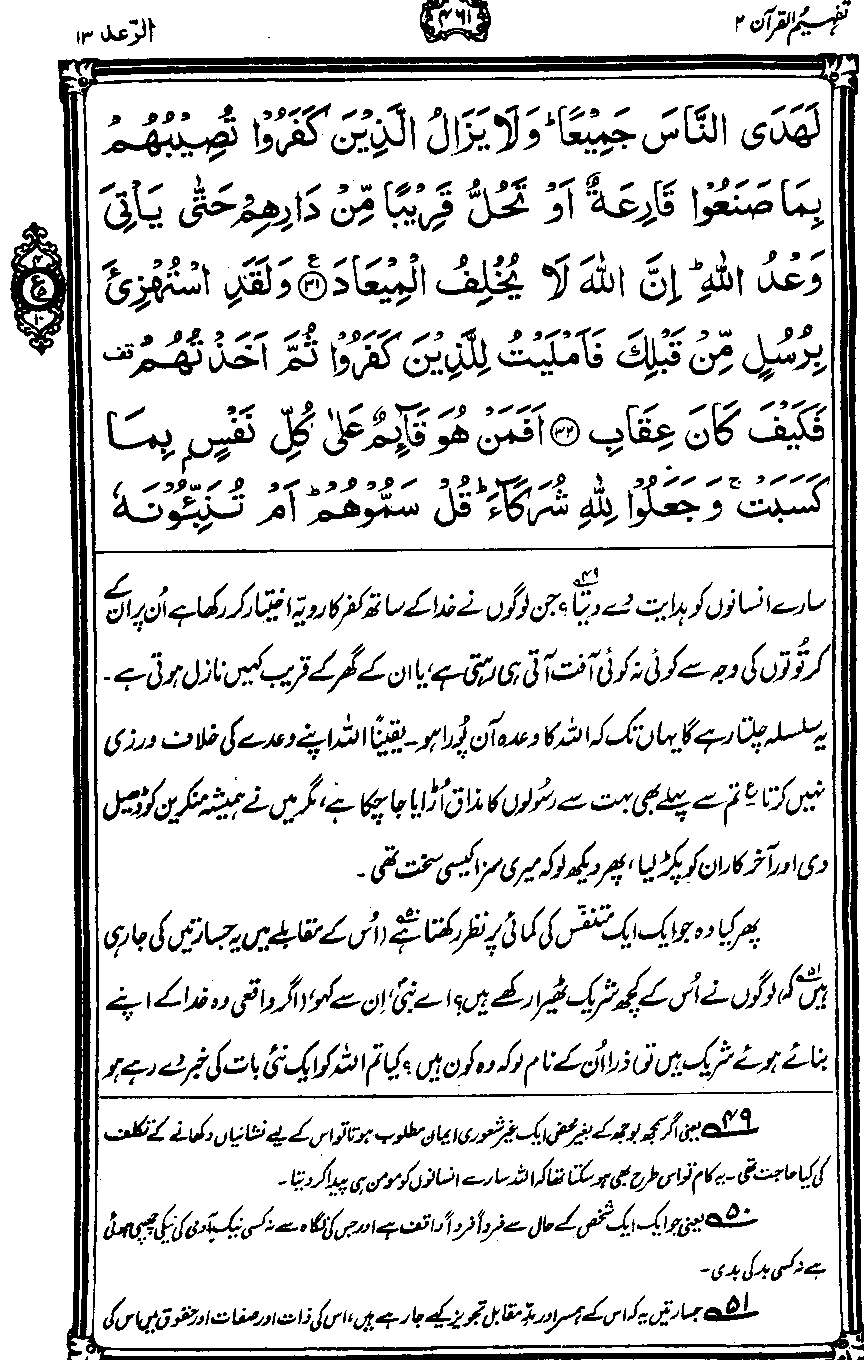 تفہیم القرآن ۲
۴۶۱
الرّعد ۱۳
لَهَدَى النَّاسَ جَمِيْعًا ؕ وَلَا يَزَالُ الَّذِيْنَ كَفَرُوْا تُصِيْبُهُمْ
بِمَا صَنَعُوْا قَارِعَةٌ اَوْ تَحُلُّ قَرِيْبًا مِّنْ دَارِهِمْ حَتّٰى يَاْتِيَ
وَعْدُ اللّٰهِ ؕ اِنَّ اللّٰهَ لَا يُخْلِفُ الْمِيْعَادَ ۝۳۱ ع وَلَقَدِ اسْتُهْزِئَ
بِرُسُلٍ مِّنْ قَبْلِكَ فَاَمْلَيْتُ لِلَّذِيْنَ كَفَرُوْا ثُمَّ اَخَذْتُهُمْ قف
فَكَيْفَ كَانَ عِقَابِ ۝۳۲ اَفَمَنْ هُوَ قَآىِٕمٌ عَلٰى كُلِّ نَفْسٍۭ بِمَا
كَسَبَتْ ۚ وَجَعَلُوْا لِلّٰهِ شُرَكَآءَ ؕ قُلْ سَمُّوْهُمْ ؕ اَمْ تُنَبِّـُٔوْنَهٗ
۴
ع
۱۰
سارے انسانوں کو ہدایت دے دیتا؟۴۹ جن لوگوں نے خدا کے ساتھ کفر کا رویّہ اختیار کر رکھا ہے اُن پر ان کے
کرتُوتوں کی وجہ سے کوئی نہ کوئی آفت آتی ہی رہتی ہے، یا ان کے گھر کے قریب کہیں نازل ہوتی ہے۔
یہ سلسلہ چلتا رہے گا یہاں تک کہ اللہ کا وعدہ آن پُورا ہو۔ یقیناً اللہ اپنے وعدے کی خلاف ورزی
نہیں کرتا ع تم سے پہلے بھی بہت سے رسُولوں کا مذاق اُڑایا جا چکا ہے، مگر میں نے ہمیشہ منکرین کو ڈھیل
دی اور آخر کار ان کو پکڑ لیا، پھر دیکھ لو کہ میری سزا کیسی سخت تھی۔
پھر کیا وہ جو ایک ایک متنفّس کی کمائی پر نظر رکھتا ہے۵۰ (اُس کے مقابلے میں یہ جسارتیں کی جا رہی
ہیں۵۱ کہ) لوگوں نے اُس کے کچھ شریک ٹھیرا رکھے ہیں؟ اے نبیؐ، اِن سے کہو، (اگر واقعی وہ خدا کے اپنے
بنائے ہوئے شریک ہیں تو) ذرا اُن کے نام لو کہ وہ کون ہیں؟ کیا تم اللہ کو ایک نئی بات کی خبر دے رہے ہو
۴۹ یعنی اگر سمجھ بوجھ کے بغیر محض ایک غیر شعوری ایمان مطلوب ہوتا تو اس کے لیے نشانیاں دکھانے کے تکلف
کی کیا حاجت تھی۔ یہ کام تو اس طرح بھی ہو سکتا تھا کہ اللہ سارے انسانوں کو مومن ہی پیدا کر دیتا۔
۵۰ یعنی جو ایک ایک شخص کے حال سے فرداً فرداً واقف ہے اور جس کی نگاہ سے نہ کسی نیک آدمی کی نیکی چھپی ہوئی
ہے نہ کسی بد کی بدی۔
۵۱ جسارتیں یہ کہ اس کے ہمسر اور مدِّ مقابل تجویز کیے جا رہے ہیں، اس کی ذات اور صفات اور حقوق میں اس کی